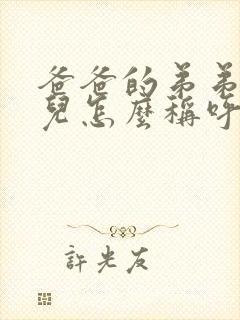 爸爸的弟弟
兒怎麼稱呼
許光友